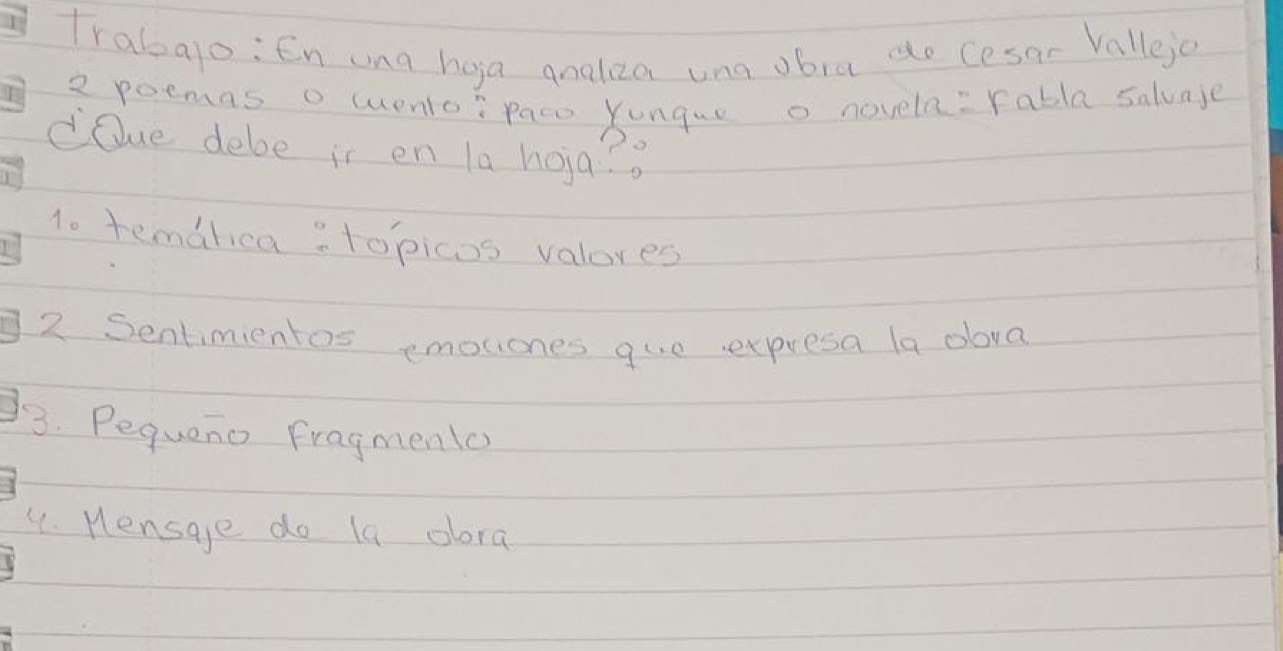 Trabajo: En una hoja analiza una obra de Cesar Vallejo
2 poemas o cuento: paco Yunque o novela: Fabla salvaje
¿Que debe ir en la hoja?:
1. temática: tópicos valores
2 Sentimientos emociones que expresa la obra
3. Pequeño fragmento
4. Mensaje de la obra